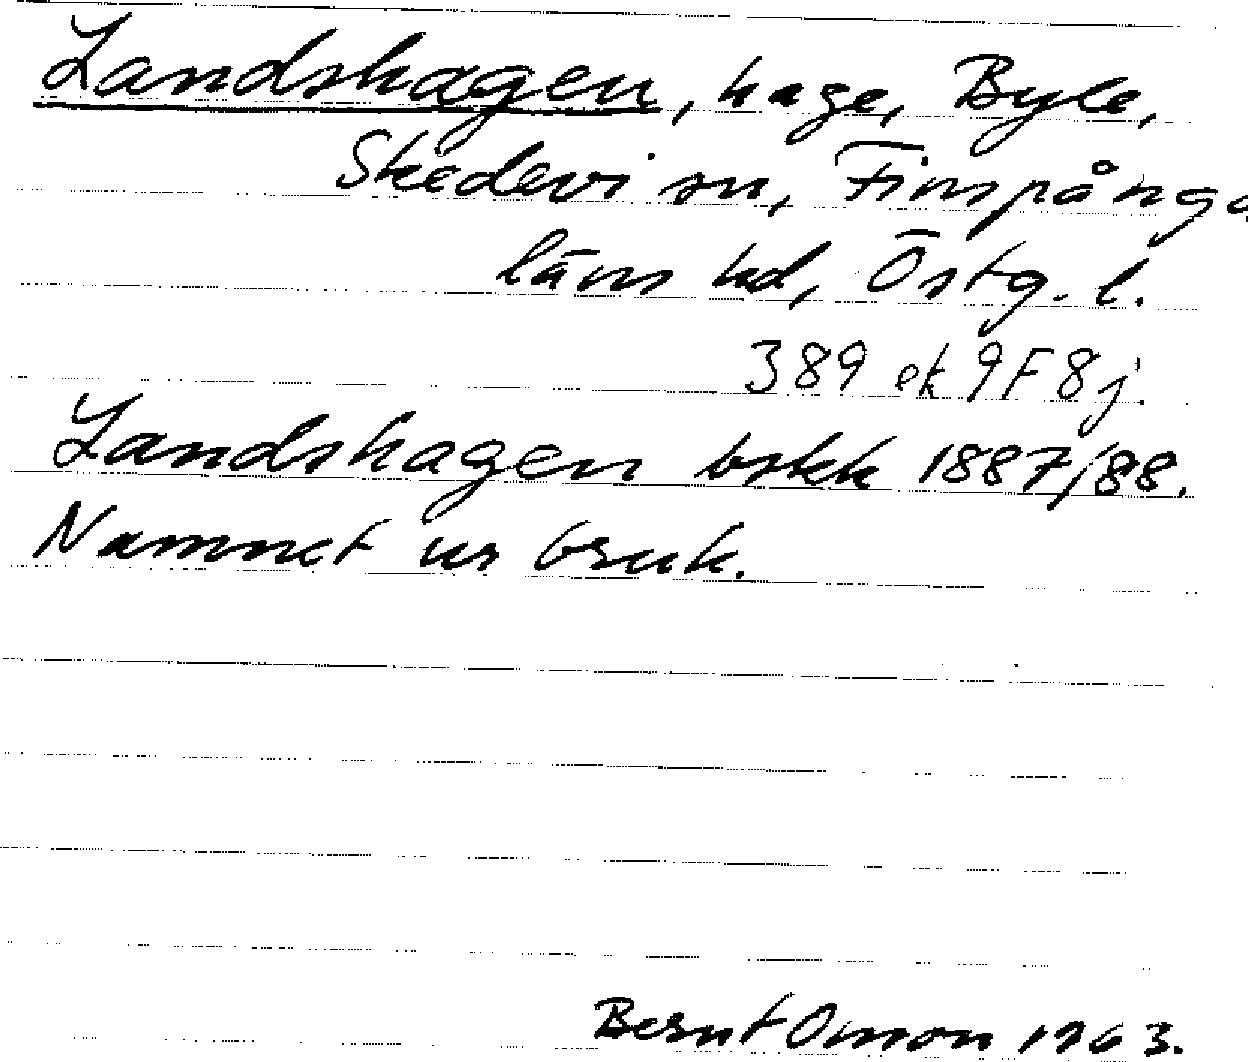 Landshagen, hage, Byle,
Skedevi sn, Finspånga
läns hd, Östg. l.
389 ek 9F8j.
Landshagen bskk 1887/88.
Namnet ur bruk.
Bernt Omon 1963.